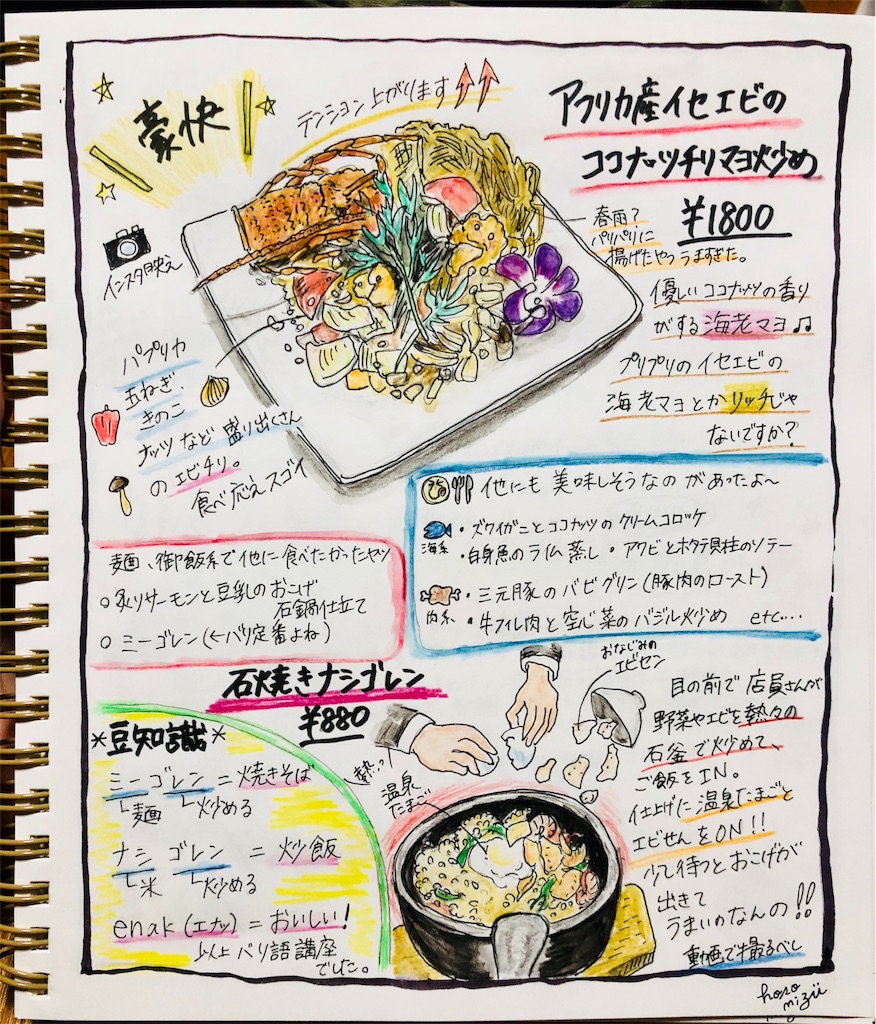 豪快
テンション上がります
アフリカ産イセエビの
ココナッツチリマヨ炒め
¥1800
インスタ映え
春雨で
パリパリに
揚げたやつ うますぎた。
優しいココナッツの香り
がする海老マヨ♫
プリプリのイセエビの
海老マヨとかリッチじゃ
ないですか?
パプリカ
玉ねぎ、
きのこ
ナッツなど盛り出くさん
のエビチリ。
食べ応えスゴイ
他にも 美味しそうなの があったよ〜
海系
・ズワイガニとココナッツの クリームコロッケ
・白身魚のライム蒸し ・アワビとホタテ貝柱のソテー
肉系
・三元豚のバビグリン(豚肉のロースト)
・牛フィレ肉と空心菜のバジル炒め etc…
麺、御飯系で他に食べたかったヤツ
○炙りサーモンと豆乳のおこげ
石鍋仕立て
○ミーゴレン(←バリ定番よね)
石焼きナシゴレン
¥880
*豆知識*
ミーゴレン=焼きそば
麺 炒める
ナシ ゴレン = 炒飯
米 炒める
enak(エナッ)=おいしい!
以上バリ語講座
でした。
熱っ!
温泉
たまご
おなじみの
エビセン
目の前で店員さんが
野菜やエビを熱々の
石釜で炒めて、
ご飯をIN。
仕上げに温泉たまごと
エビせんをON!!
少し待つとおこげが
出きて
うまいのなんの!!
動画で撮るべし
hoso
mizii